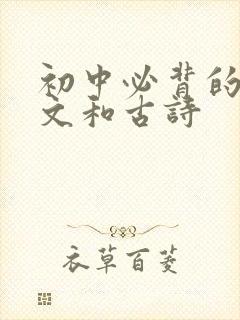 初中必背的
文和古詩
衣草百菱